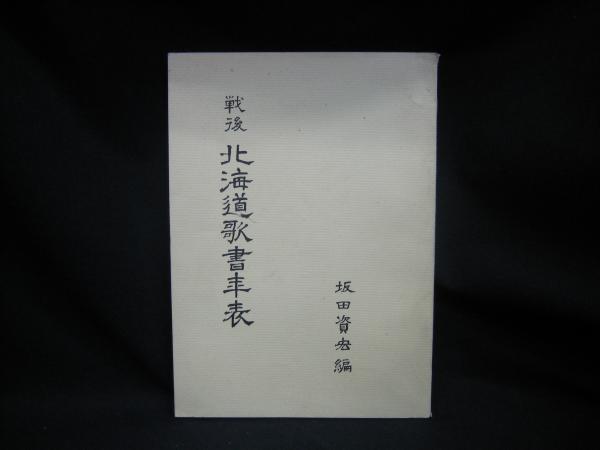 戦後 北海道歌書年表
坂田資宏編